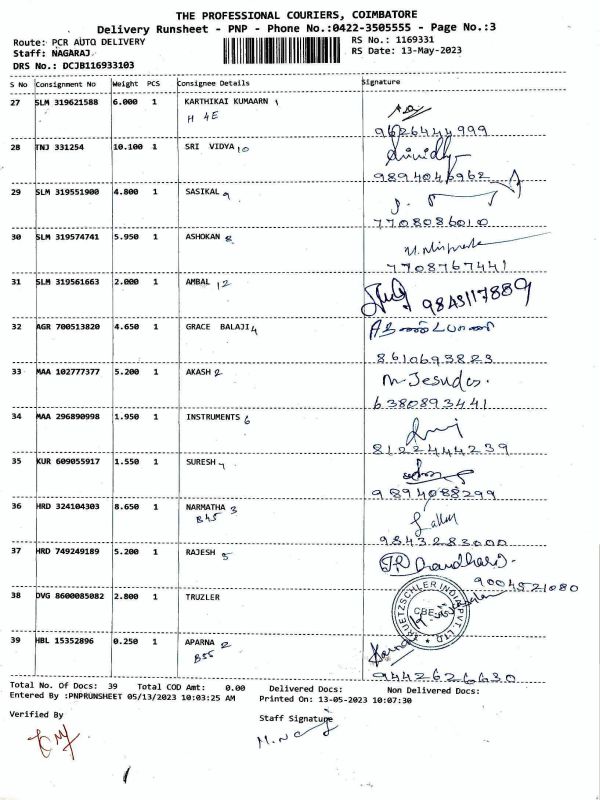 THE PROFESSIONAL COURIERS, COIMBATORE
Delivery Runsheet - PNP - Phone No.:0422-3505555 - Page No.:3
Route: PCR AUTO DELIVERY RS No.: 1169331
Staff: NAGARAJ RS Date: 13-May-2023
DRS No.: DCJB116933103
S No Consignment No Weight PCS Consignee Details Signature
27 SLM 319621588 6.000 1 KARTHIKAI KUMAARN 1
H 4E
9626444999
28 TNJ 331254 10.100 1 SRI VIDYA 10
9894046962
29 SLM 319551900 4.800 1 SASIKAL 9
7708086010
30 SLM 319574741 5.950 1 ASHOKAN 8
7708767441
31 SLM 319561663 2.000 1 AMBAL 12
9843117889
32 AGR 700513820 4.650 1 GRACE BALAJI 4
8610693823
33 MAA 102777377 5.200 1 AKASH 2
M Jesudos.
6380893441
34 MAA 296890998 1.950 1 INSTRUMENTS 6
8122444239
35 KUR 609055917 1.550 1 SURESH
9894088299
36 HRD 324104303 8.650 1 NARMATHA 3
B45
9843283000
37 HRD 749249189 5.200 1 RAJESH 5
9004521080
38 DVG 8600085082 2.800 1 TRUZLER
TRUETZSCHLER INDIA PVT. LTD
CBE
39 HBL 15352896 0.250 1 APARNA 2
B55
9442626630
Total No. Of Docs: 39 Total COD Amt: 0.00 Delivered Docs: Non Delivered Docs:
Entered By :PNPRUNSHEET 05/13/2023 10:03:25 AM Printed On: 13-05-2023 10:07:30
Verified By Staff Signature